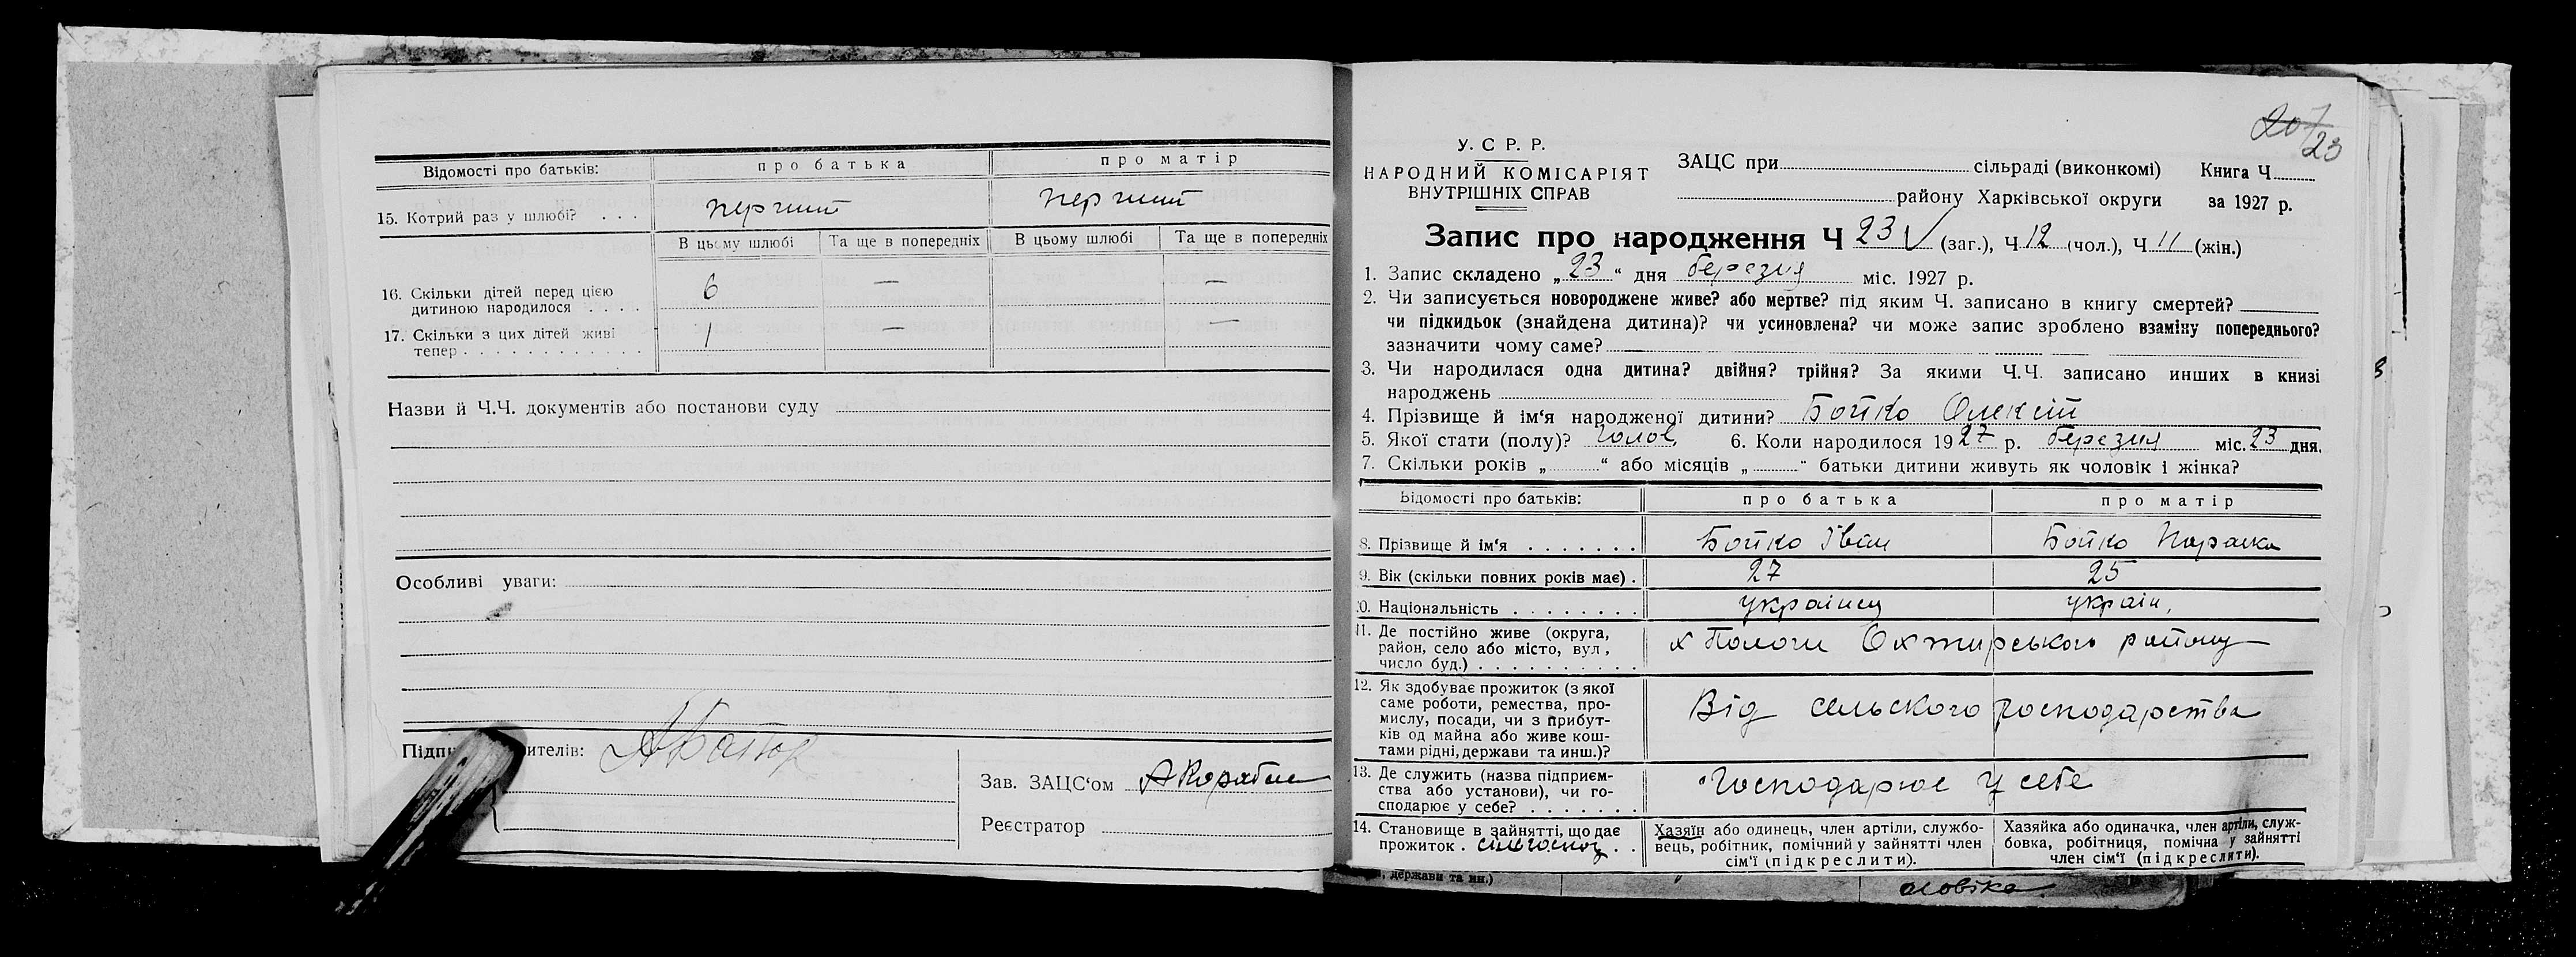 Відомості про батьків: про батька про матір
15. Котрий раз у шлюбі? . . . перший перший
В цьому шлюбі Та ще в попередніх В цьому шлюбі Та ще в попередніх
16. Скільки дітей перед цією
дитиною народилося . . . . 6 — —
17. Скільки з цих дітей живі
тепер . . . . . . . . . . . . 1 — —
Назви й Ч.Ч. документів або постанови суду
Особливі уваги:
Зав. ЗАЦС‘ом
Реєстратор
20/23
У. С Р. Р.
НАРОДНИЙ КОМІСАРІЯТ
ВНУТРІШНІХ СПРАВ
ЗАЦС при сільраді (виконкомі) Книга Ч.
району Харківської округи за 1927 р.
Запис про народження Ч 23 (заг.), Ч 12 (чол.), Ч 11 (жін.)
1. Запис складено „23“ дня березня міс. 1927 р.
2. Чи записується новороджене живе? або мертве? під яким Ч. записано в книгу смертей?
чи підкидьок (знайдена дитина)? чи усиновлена? чи може запис зроблено взаміну попереднього?
зазначити чому саме?
3. Чи народилася одна дитина? двійня? трійня? За якими Ч.Ч. записано инших в книзі
народжень
4. Прізвище й ім‘я народженої дитини? Бойко Олексій
5. Якої стати (полу)? чолов. 6. Коли народилося 1927 р. березня міс. 23 дня.
7. Скільки років „ “ або місяців „ “ батьки дитини живуть як чоловік і жінка?
Відомості про батьків: про батька про матір
8. Прізвище й ім‘я . . . . . . . Бойко Іван Бойко Параска
9. Вік (скільки повних років має) . 27 25
0. Національність . . . . . . . . українец україн.
11. Де постійно живе (округа,
район, село або місто, вул,
число буд.) . . . . . . . . . . х Пологи Охтирського району
12. Як здобуває прожиток (з якої
саме роботи, ремества, про-
мислу, посади, чи з прибут-
ків од майна або живе кош-
тами рідні, держави та инш.)? Від сельского господарства
13. Де служить (назва підприєм-
ства або установи), чи го-
сподарює у себе? . . . . . . . Господарює у себе
14. Становище в зайнятті, що дає
прожиток . сільгосп. . .
Хазяїн або одинець, член артіли, службо-
вець, робітник, помічний у зайнятті член
сім‘ї (підкреслити).
Хазяйка або одиначка, член артіли, служ-
бовка, робітниця, помічна у зайнятті
член сім‘ї (підкреслити).
, держави та ин.)